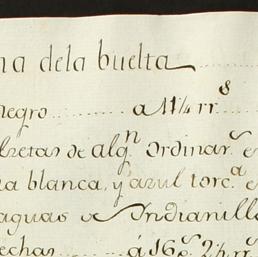 na dela buelta
negro a 11¼ rrs
lzetas de algn ordinars e
a blanca, y azul torca e
aguas de Indianill
echas á 16s 2½ rrs